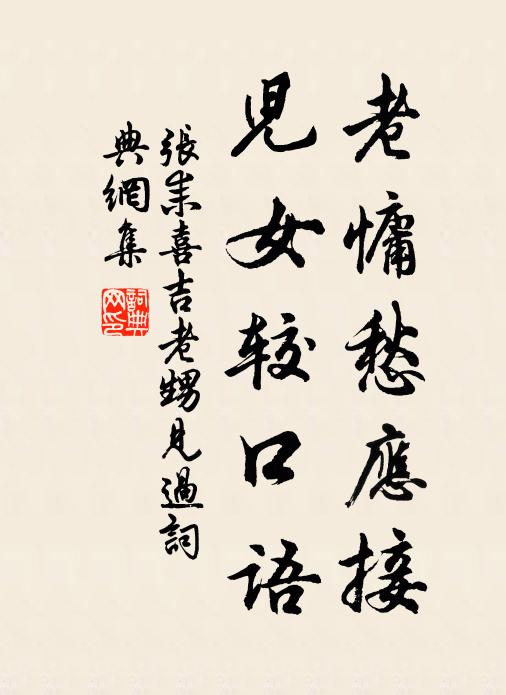 老慵愁應接
兒女較口語
張耒喜吉老甥見過詞
典網集
詞典
网印